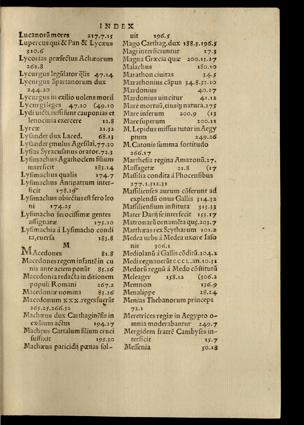 INDEX
Lucanorū mores 217.7.15
Lupercus qui & Pan & Lycæus
310.6
Lycortas præfectus Achæorum
261.8
Lycurgus legislator q̃lis 47.14
Lycurgus Spartanorum dux
244.20
Lycurgus in exilio volens morit
Lycurgi leges 47.10
Lydi victi, iussi sunt cauponias et
lenocinia exercere 12.8
Lyrcæ 21.32
Lysander dux Laced. 68.13
Lysias Syracusanus orator. 72.3
Lysimachus Agathoclem filium
interficit 181.14
Lysimachus qualis 174.7
Lysimachus Antipatrum inter-
ficit 178.19
Lysimachus obiectus est fero leo
ni 174.25
Lysimacho ferocissimæ gentes
assignatæ 125.10
Lysimachia á Lysimacho condi
ta, euersa 183.8
M
Macedones 81.8
Macedones regem infantē in cu
nis ante aciem ponūt 85.16
Macedonia redacta in ditionem
populi Romani 267.2
Macedoniæ nomina 83.16
Macedonum xxx. reges fuerūt
265.25.266.32
Machæus dux Carthaginēsis in
exilium actus 194.27
Machæus Cartalum filium cruci
suffixit 195.20
Machæus paricidij pœnas sol-
uit 196.5
Mago Carthag. dux 188.3.196.5
Magi interficiuntur 17.5
Magna Græcia quæ 200.15.27
Malachus 180.10
Marathon ciuitas 34.5
Marathonius cāpus 34.8.51.10
Mardonius 40.27
Mardonius vincitur 41.12
Mare mortuū, eiusq́; natura. 277.5
Mare inferum 200.9
Mare superum 200.11
M. Lepidus missus tutor in Aegy
ptum 249.26
M. Catonis summa fortitudo
266.17
Marthesia regina Amazonū. 27.
Massagetæ 21.8
Massilia condita á Phocensibus
277.1.312.31
Massilienses aurum cōferunt ad
expiendū onus Gallis 314.32
Massiliensium instituta 313.25
Mater Darij se interfecit 151.17
Matronarū ornamēta quæ. 203.7
Matthæas rex Scytharum 101.2
Medea urbs á Medea uxore Iaso
nis 306.1
Mediolanū á Gallis cōditū. 204.2
Medi regnauerūt ccc l. an. 10.31
Medorū regnū á Medo cōstitutū
Meleager 158.12
Memnon 136.9
Menalippe 28.24
Menias Thebanorum princeps
72.1
Meretrices regiæ in Aegypto o-
mnia moderabantur 249.7
Mergidem fratrē Cambyses in-
terficit 15.7
Messenia 50.18